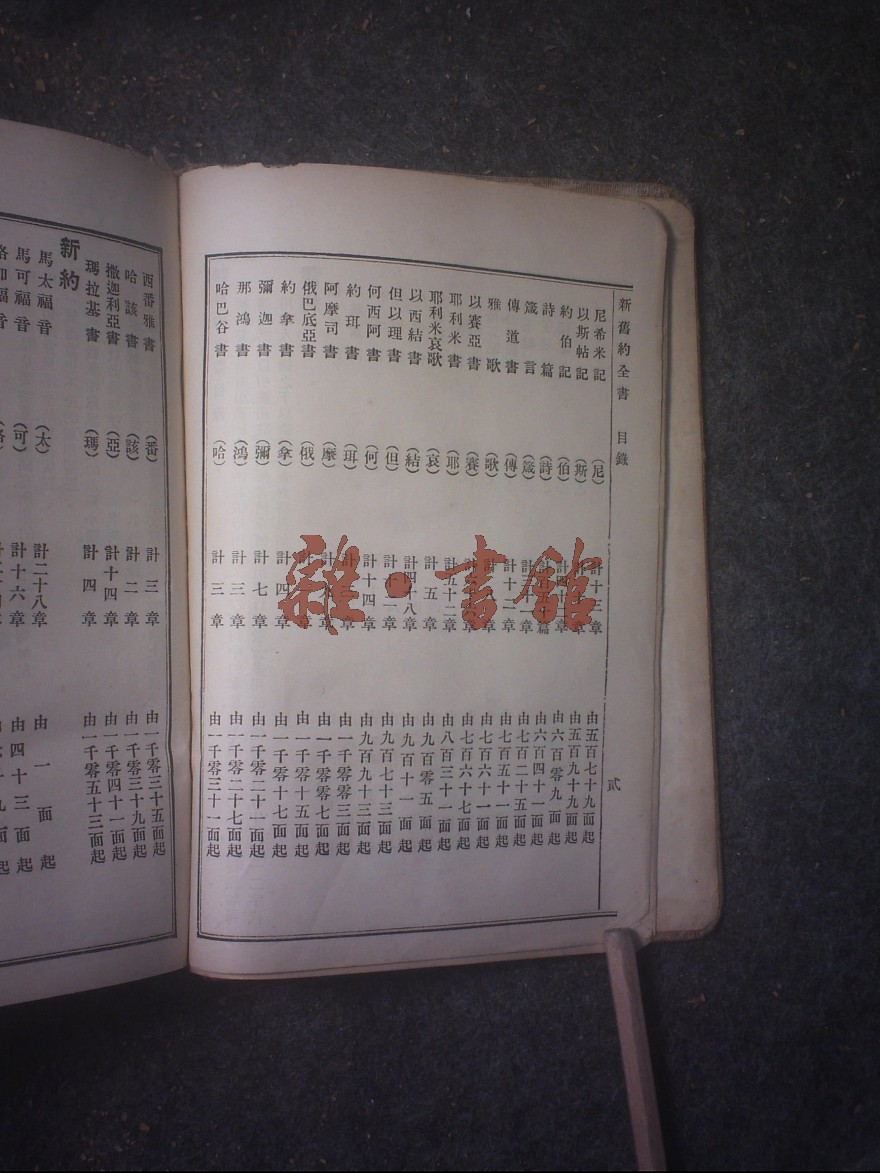 新舊約全書 目錄 貳
尼希米記 （尼） 計十三章 由五百七十九面起
以斯帖記 （斯） 由五百九十九面起
約伯記 （伯） 由六百零九面起
詩篇 （詩） 由六百四十一面起
箴言 （箴） 由七百二十五面起
傳道書 （傳） 計十二章 由七百五十一面起
雅歌 （歌） 由七百六十一面起
以賽亞書 （賽） 由七百六十七面起
耶利米書 （耶） 計五十二章 由八百三十一面起
耶利米哀歌 （哀） 計五章 由九百零五面起
以西結書 （結） 計四十八章 由九百十一面起
但以理書 （但） 計十二章 由九百七十三面起
何西阿書 （何） 計十四章 由九百九十三面起
約珥書 （珥） 計三章 由一千零零三面起
阿摩司書 （摩） 由一千零零七面起
俄巴底亞書 （俄） 由一千零十五面起
約拿書 （拿） 計四章 由一千零十七面起
彌迦書 （彌） 計七章 由一千零二十一面起
那鴻書 （鴻） 計三章 由一千零二十七面起
哈巴谷書 （哈） 計三章 由一千零三十一面起
西番雅書 （番） 計三章 由一千零三十五面起
哈該書 （該） 計二章 由一千零三十九面起
撒迦利亞書 （亞） 計十四章 由一千零四十一面起
瑪拉基書 （瑪） 計四章 由一千零五十三面起
新約
馬太福音 （太） 計二十八章 由一面起
馬可福音 （可） 計十六章 由四十三面起
路加福音 （路）
雜·書館